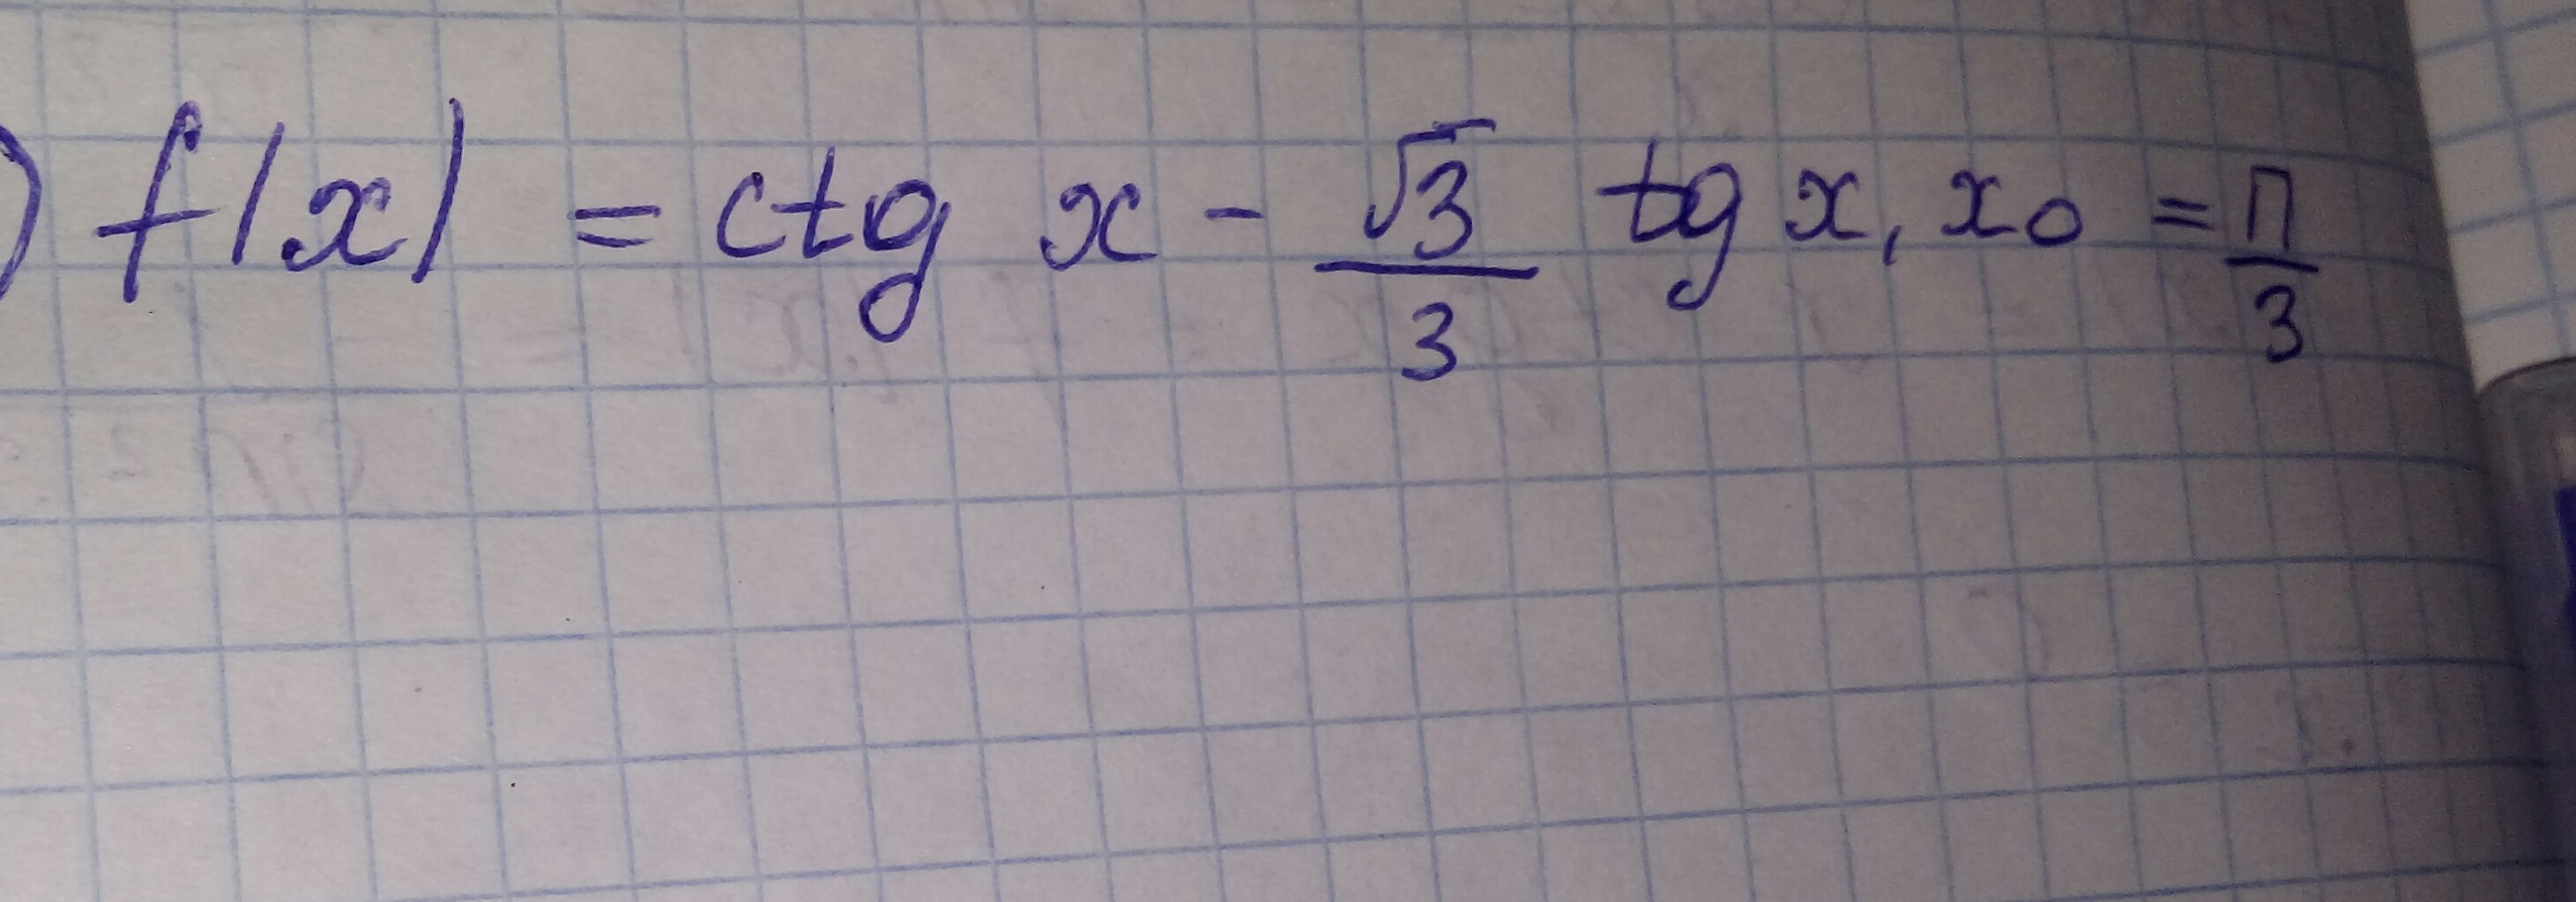 ) f(x) = ctg x - √3/3 tg x, x₀ = π/3